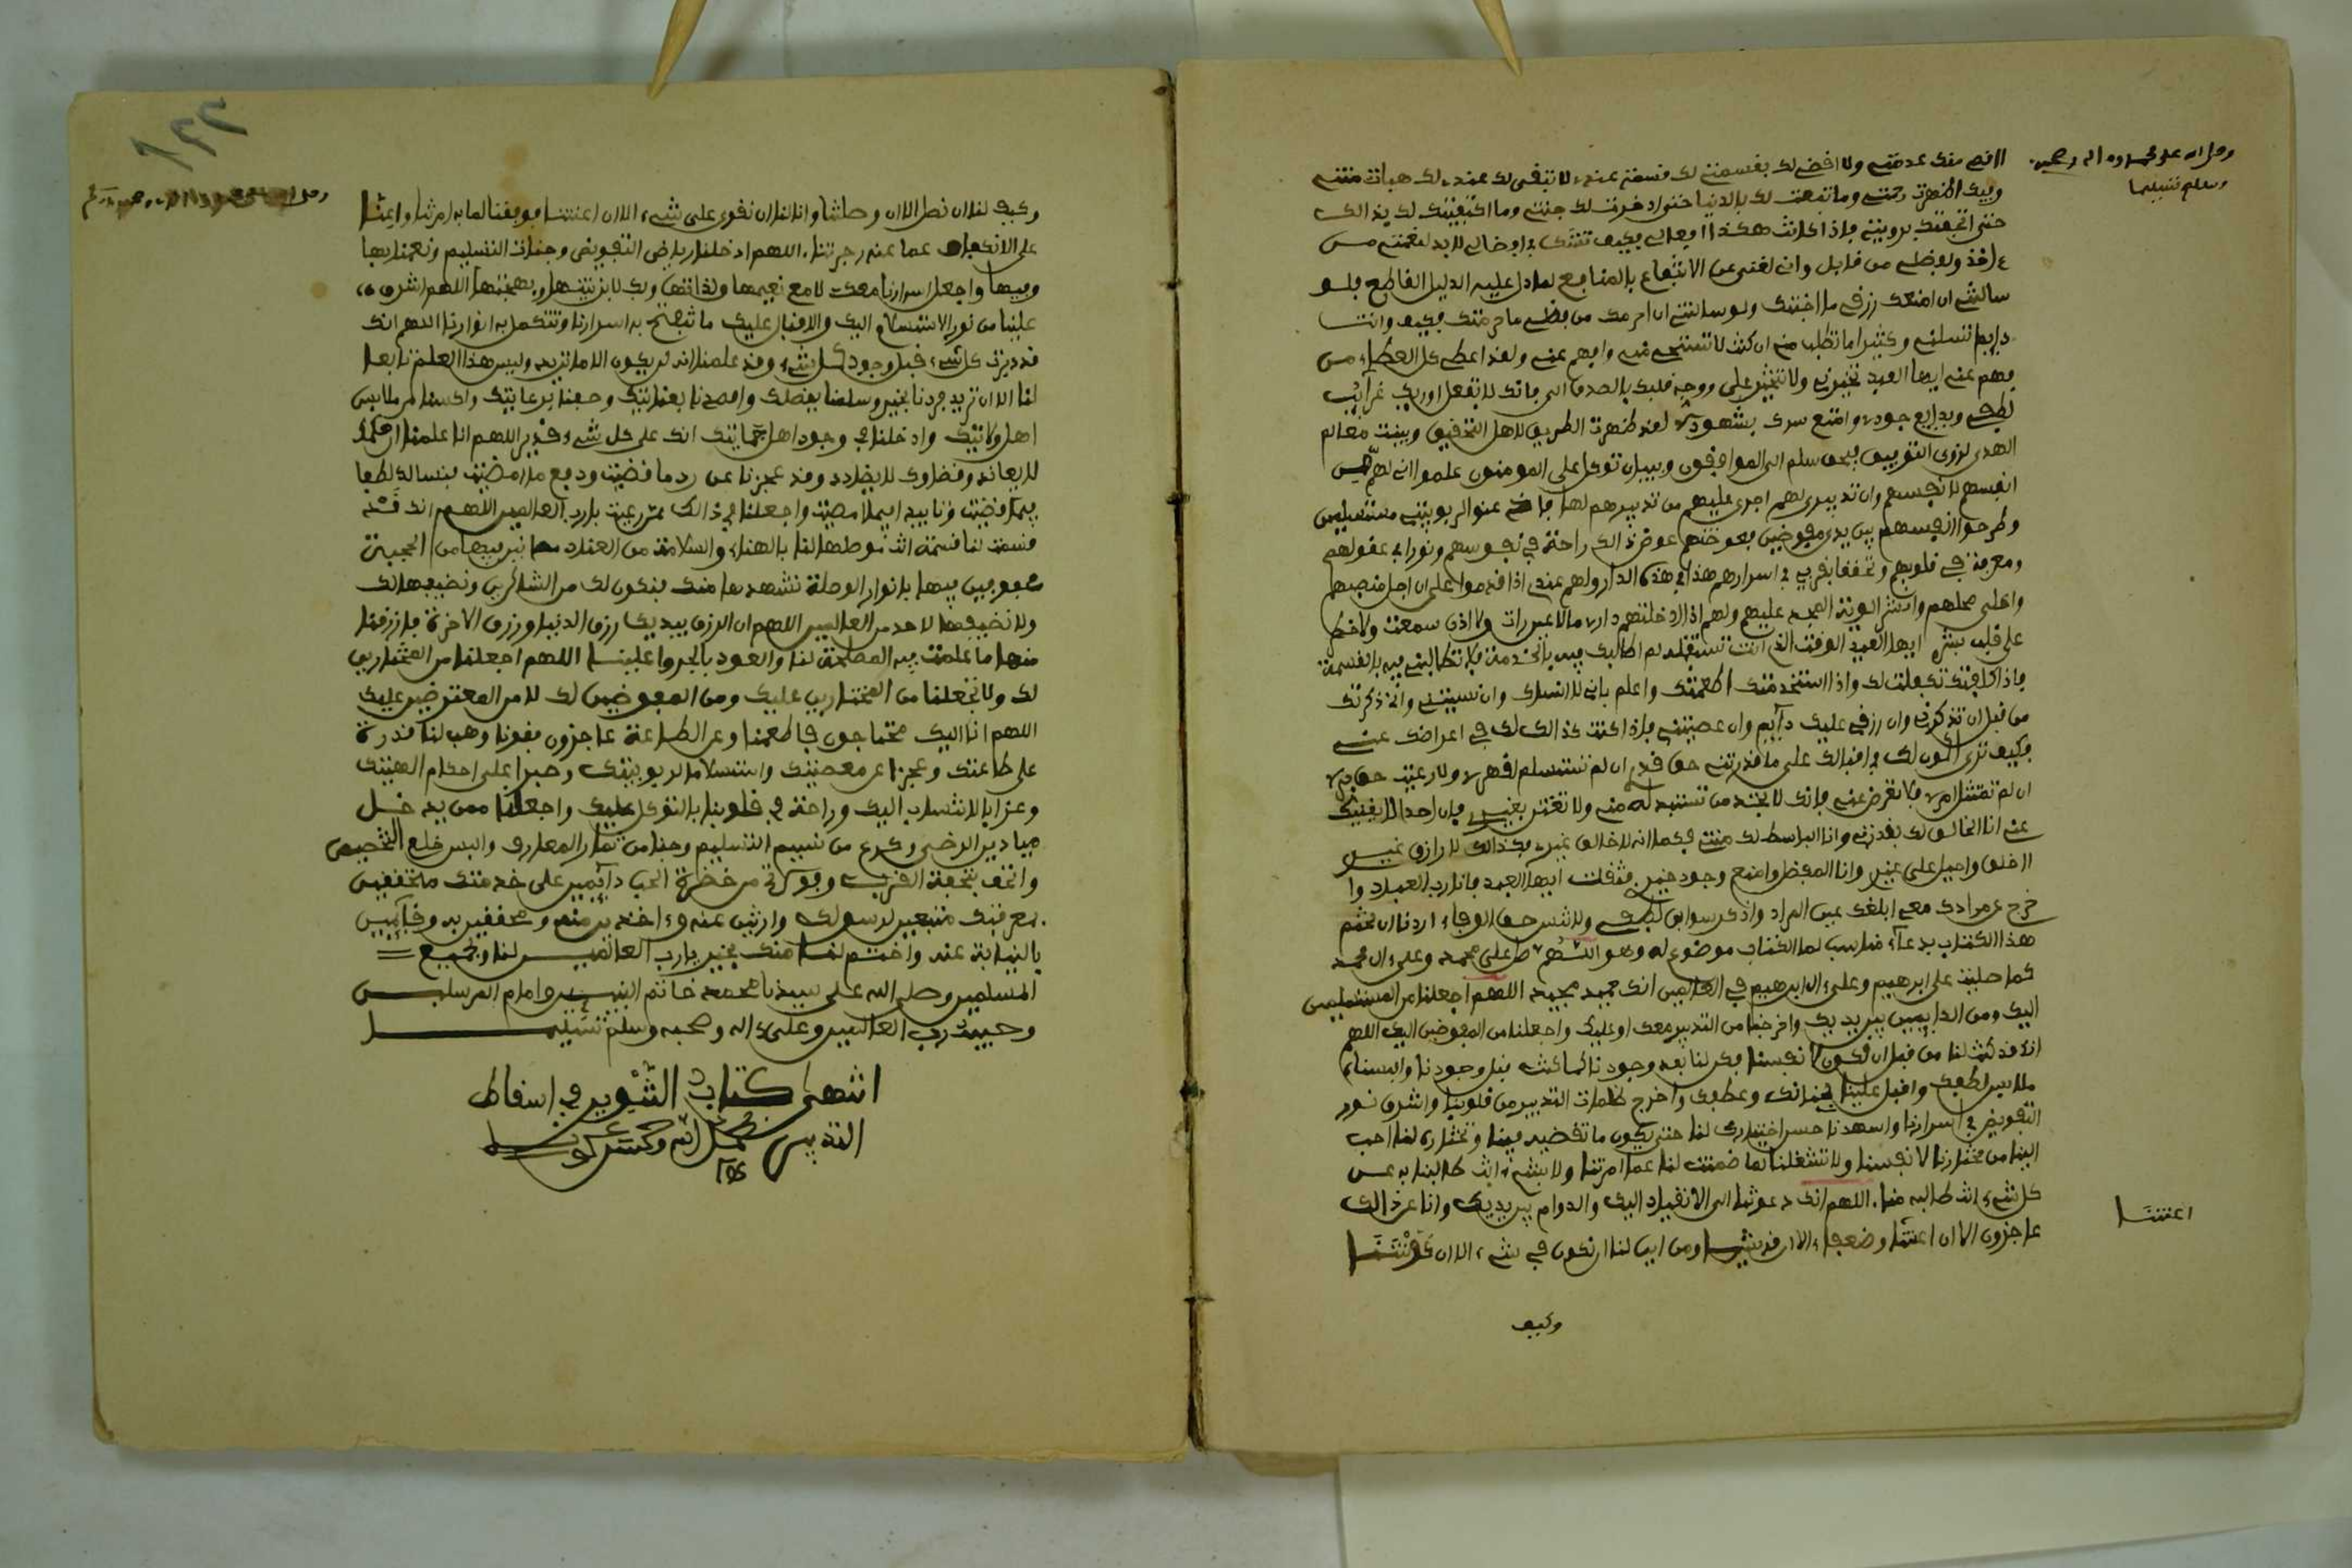 وصل الله على محمد واله وصحبه
وسلم تسليما
لا افهم منك عدمته ولا افضى لك بقسمتى لك قسمة عندى لا تبقى لك عندى لك هباتى منتى
وبيك اظهرت رحمتى وما قنعت لك بالدنيا حتى ادخرت لك جنتى وما اكتفيت لك بذالك
حتى اتحفتك برويتى فاذا كانت هكذا افعالى فكيف تشك فى افضالى لابد لنعمتى من
ءاخذ ولفضلى من قابل وانى لغنى عن الانتفاع بالمنافع لما دل عليه الدليل القاطع فلو
سالتنى ان امنعك رزقى ما اجبتك ولو سالتنى ان احرمك من فضلى ما حرمتك فكيف وانت
دايم تسلنى وكثيرا ما تطلب منى ان كنت لا تستحى منى وافهم عنى ولقد اعطى كل العطاء من
فهم عنى ايها العبد تخيرنى ولا تتخير على ووجه قلبك بالصدق الى فانك ان تفعل اوريك غرآئب
لطفى وبدايع جودى وامتع سرك بشهودى لقد اظهرت الطريق لاهل التحقيق وبينت معالم
الهدى لذوى التوفيق فبحق سلم الى الموافقون وببيان توكل على المومنون علموا انى لهم من
انفسهم لانفسهم وان تدبيرى لهم اجرى عليهم من تدبيرهم لها فاذعنوا لربوبيتى مستسلمين
وطرحوا انفسهم بين يدى مفوضين فعوضتهم عوض ذالك راحة فى نفوسهم ونورا فى عقولهم
ومعرفة فى قلوبهم وتحققا بقربى فى اسرارهم هذا فى هذه الدار ولهم عندى اذا قدموا على ان اجل منصبهم
واعلى محلهم وانشر الوية المجد عليهم ولهم اذا ادخلتهم دارى ما لا عين رات ولا اذن سمعت ولا خطر
على قلب بشر ايها العبد الوقت الذى انت تستقبله لم اطالبك فيه بالخدمة فلا تطالبنى فيه بالقسمة
فاذا كلفتك تكفلت لك واذا استخدمتك اطعمتك واعلم بانى لا انساك وان نسيتنى وانى ذكرتك
من قبل ان تذكرنى وان رزقى عليك دآيم وان عصيتنى فاذا كنت كذالك لك فى اعراضك عنى
فكيف ترى اكون لك فى اقبالك على ما قدرتنى حق قدرى ان لم تستسلم لقهرى ولا رعيت حق برى
ان لم تمتثل امرى فلا تعرض عنى فانك لا تجد من تستبدله منى ولا تغتر بغيرى فان احدا لا يغنيك
عنى انا الخالق لك بقدرتى وانا الباسط لك منتى فكما انه لا خالق غيرى فكذالك لا رازق غيرى
ااخلق واحيل على غيرى وانا المفضل وامنع وجود خيرى فثق ايها العبد فانا رب العباد وا
خرج عن مرادك معى ابلغك عين المراد واذكر سوابق لطفى ولا تنس حق الوفاء اردنا ان نختم
هذا الكتاب بدعاء مناسب لما الكتاب موضوع له وهو اللهم صل على محمد وعلى ءال محمد
كما صليت على ابرهيم وعلى ءال ابرهيم فى العالمين انك حميد مجيد اللهم اجعلنا من المستسلمين
اليك ومن الدايمين بين يديك واخرجنا من التدبير معك او عليك واجعلنا من المفوضين اليك اللهم
انك قد كنت لنا من قبل ان نكون لانفسنا فكن لنا بعد وجودنا كما كنت قبل وجودنا والبسنا
ملابس لطفك واقبل علينا بحنانك وعطفك واخرج ظلمات التدبير من قلوبنا واشرق نور
التفويض فى اسرارنا واشهدنا حسن اختيارك لنا حتى يكون ما تقضيه فينا وتختاره لنا احب
الينا من مختارنا لانفسنا ولا تشغلنا بما ضمنت لنا عما امرتنا ولا بشىء انت طالبنا به عن
كل شىء انت طالبه منا. اللهم انك دعوتنا الى الانقياد اليك والدوام بين يديك وانا عن ذالك
عاجزون الا ان اعنتنا وضعفاء الا ان قويتنا ومن اين لنا ان نكون فى شىء الا ان كونتنا
اعنتنا
وكيف
١٢٢
وكيف لنا ان نصل الا ان وصلتنا وانا لنا ان نقوى على شىء الا ان اعنتنا فوفقنا لما به امرتنا واعنا
على الانكفاف عما عنه زجرتنا. اللهم ادخلنا رياض التفويض وجنات التسليم ونعمنا بها
وفيها واجعل اسرارنا معك لا مع نعيمها ولذاتها وبك لا بزينتها وبهجتها اللهم اشرق
علينا من نور الاستسلام اليك والاقبال عليك ما تبتهج به اسرارنا وتتكمل به انوارنا اللهم انك
قد دبرت كل شىء قبل وجود كل شىء وقد علمنا انه لن يكون الا ما تريد وليس هذا العلم نافعا
لنا الا ان تريد فردنا بخير وسلمنا بفضلك واقصدنا بعنايتك وحفنا برعايتك واكسنا من ملابس
اهل ولايتك وادخلنا فى وجود اهل حمايتك انك على كل شىء قدير اللهم انا علمنا ان حكمك
لا يعاند وقضاءك لا يضادد وقد عجزنا عن رد ما قضيت ودفع ما امضيت فنسالك لطفا
فيما قضيت وتاييدا فيما امضيت واجعلنا فى ذالك ممن رعيت يا رب العالمين اللهم انك قد
قسمت لنا قسمة انت موصلها لنا بالهناء والسلامة من العناء مصانين فيها من الحجبة
محفوفين فيها بانوار الوصلة نشهدها منك فنكون لك من الشاكرين ونضيفها لك
ولا نضيفها لاحد من العالمين اللهم ان الرزق بيديك رزق الدنيا ورزق الاخرة فارزقنا
منهما ما علمت فيه المصلحة لنا والعود بالجدوا علينا اللهم اجعلنا من المختارين
لك ولا تجعلنا من المختارين عليك ومن المفوضين لك لا من المعترضين عليك
اللهم انا اليك محتاجون فاطعمنا وعن الطاعة عاجزون فقونا وهب لنا قدرة
على طاعتك وعجزا عن معصيتك واستسلاما لربوبيتك وصبرا على احكام الهيتك
وعزا بالانتساب اليك وراحة فى قلوبنا بالتوكل عليك واجعلنا ممن يدخل
ميادين الرضى وكرع من تسنيم التسليم وجنا من ثمار المعارف والبس خلع التخصيص
واتحف بتحفة القرب وفوتح من حضرة الحب دآيمين على خدمتك متحققين
بمعرفتك متبعين لرسولك وارثين عنه وءاخذين منه ومحققين به وقآيمين
بالنيابة عنه واختم لنا منك بخير يا رب العالمين لنا ولجميع
المسلمين وصلى الله على سيدنا محمد خاتم النبيين وامام المرسلين
وحبيب رب العالمين وعلى ءاله وصحبه وسلم تسليما
انتهى كتاب التنوير فى اسقاط
التدبير بحمد الله وحسن عونه